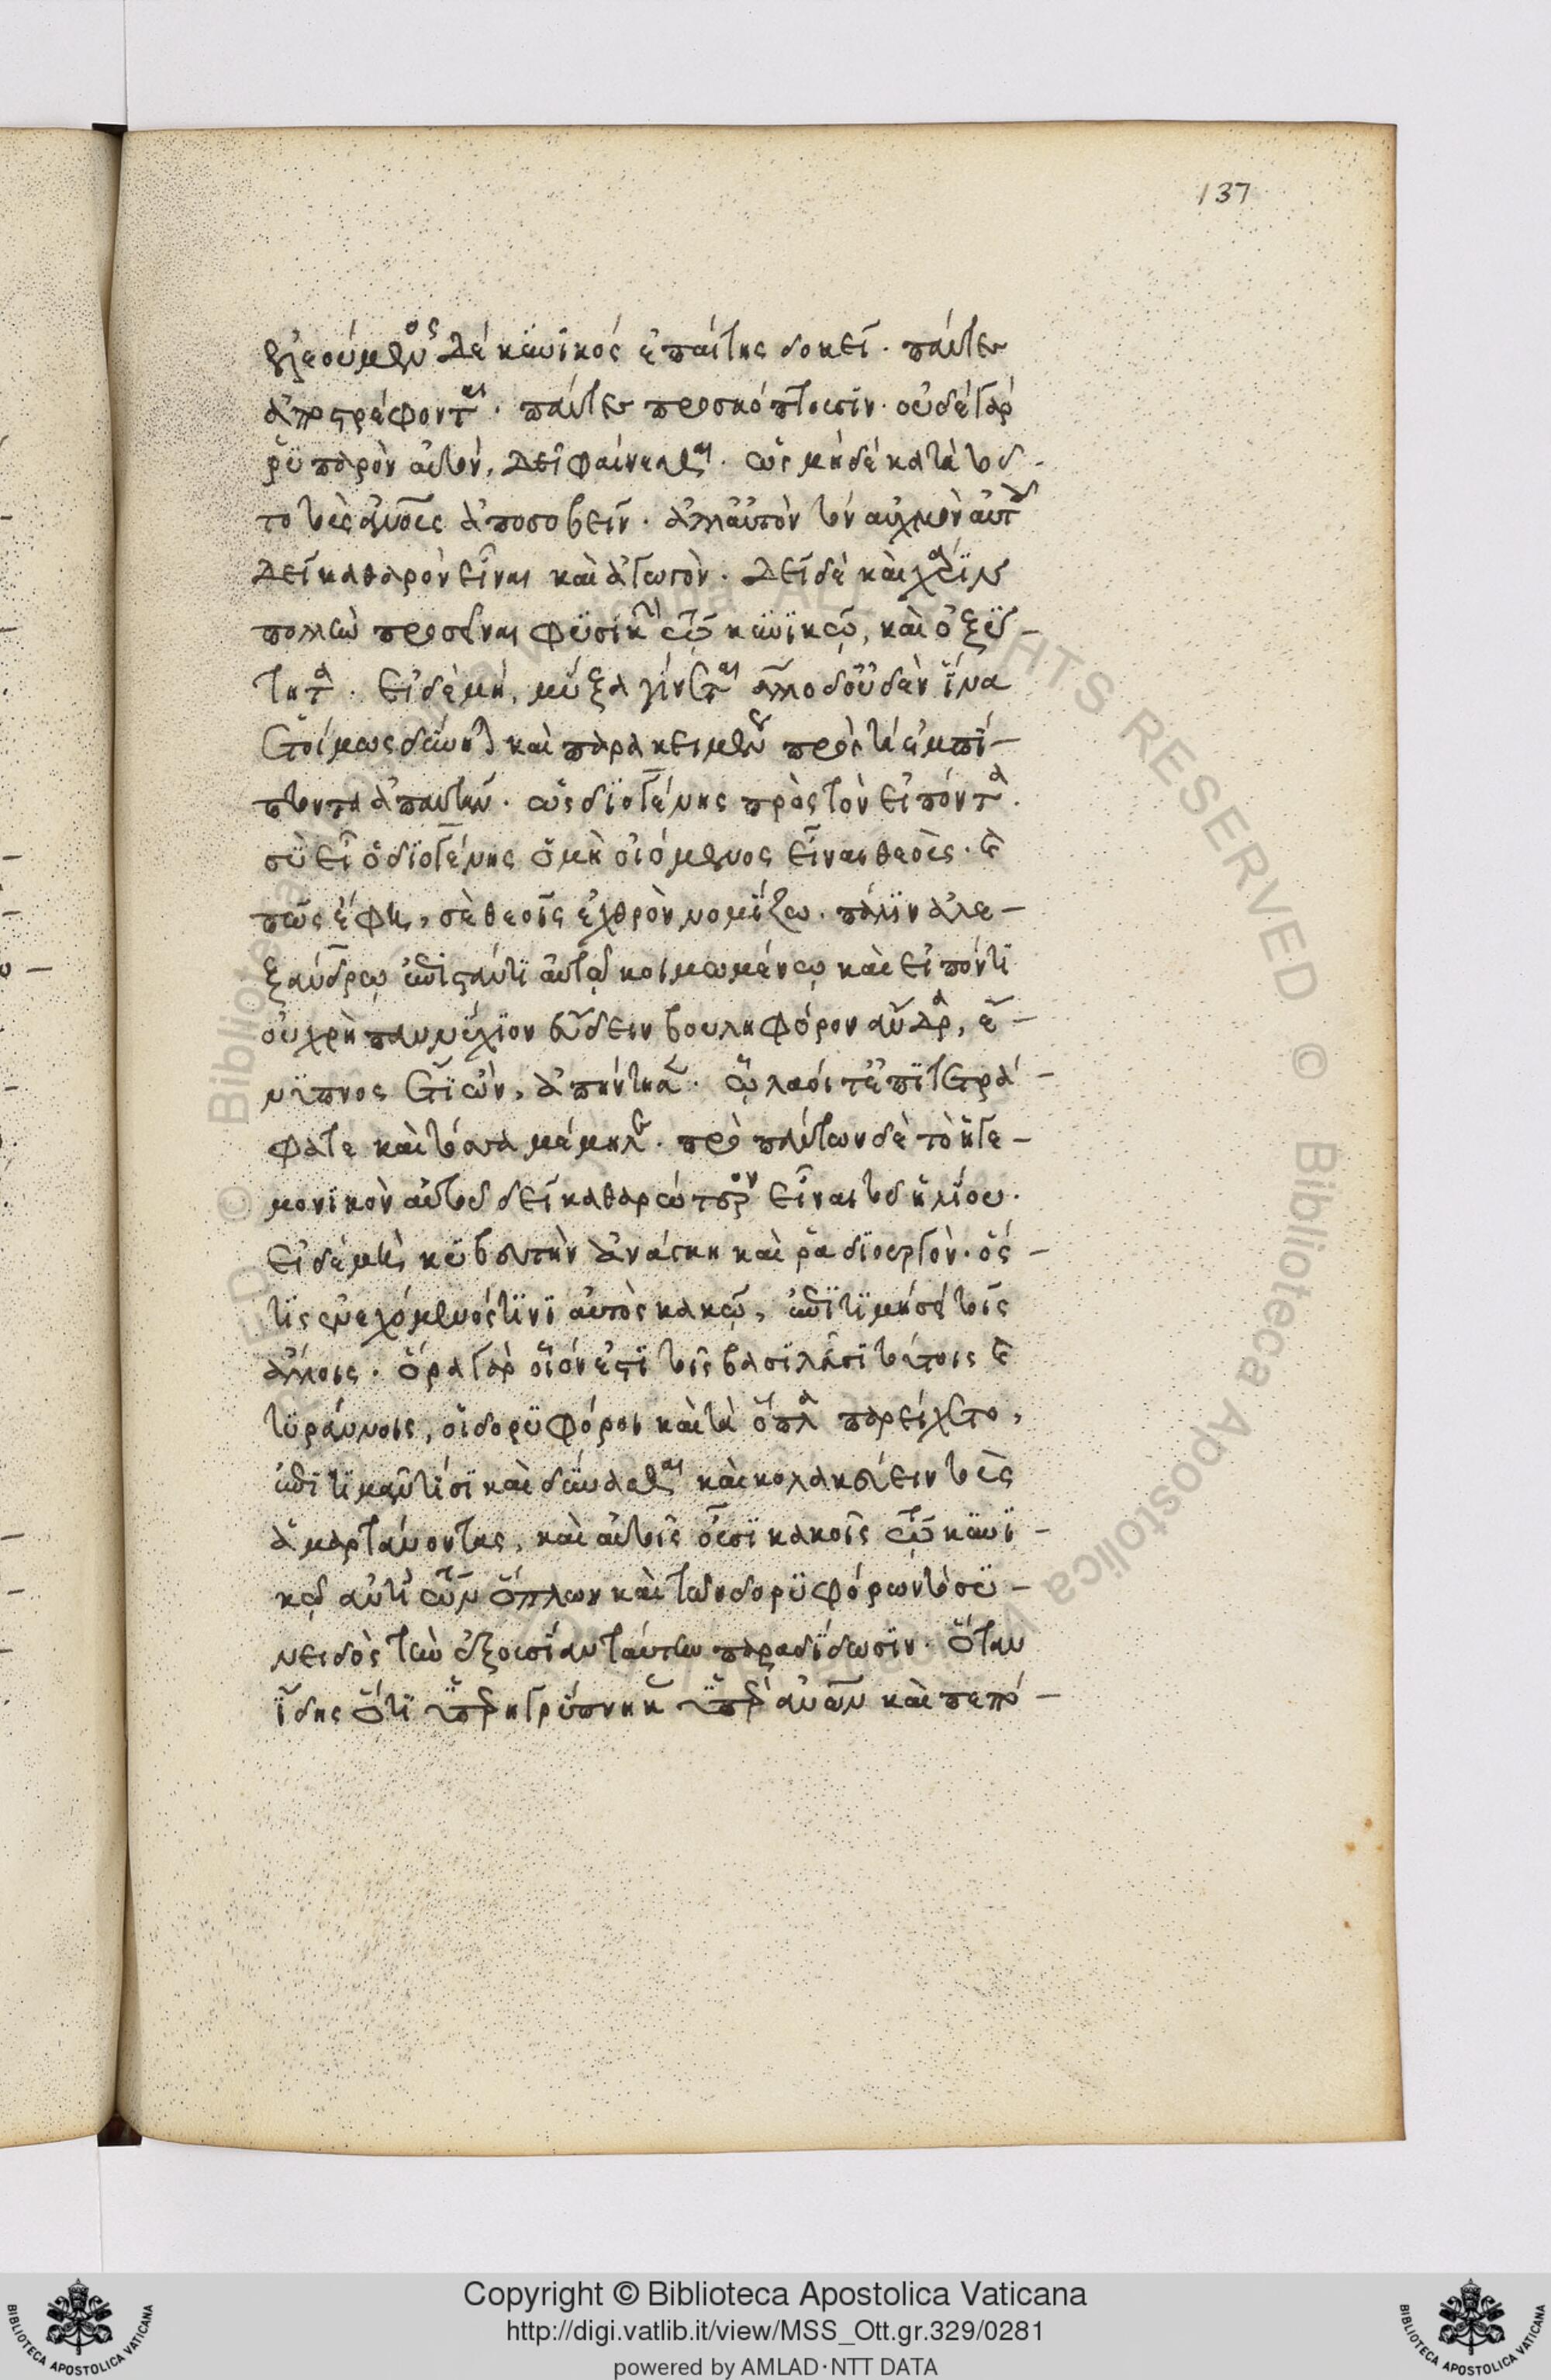 137
ἐλεούμενος δὲ κϋνϊκός ἐπαίτης δοκεῖ. πάντες
ἀποστρέφονται. πάντες προσκόπτουσϊν. οὐδὲ γὰρ
ῥϋπαρὸν αὐτὸν, δεῖ φαίνεσθαι. ὡς μηδὲ κατὰ τοῦ-
το τοὺς ἀνους ἀποσοβεῖν. ἀλλ' αὐτὸν τὸν αὐχμὸν αὐτοῦ
δεῖ καθαρὸν εἶναι καὶ ἀγωγὸν. δεῖ δὲ καὶ χάρϊν
πολλὴν προσεῖναι φϋσϊκὴν τῷ κϋνϊκῷ, καὶ ὀξΰ-
τητα. εἰ δὲ μὴ, μύξα γίνεται ἄλλο δ' οὐδὲν ἵνα
ἑτοίμως δύνηται καὶ παρακειμένως πρὸς τὰ ἐμπί-
πτοντα ἀπαντᾶν. ὡς δϊογένης πρὸς τὸν εἰπόντα.
σὺ εἶ ὁ δϊογένης ὁ μὴ οἰόμενος εἶναι θεοὺς. καὶ
πῶς ἔφη, σὲ θεοῖς ἐχθρὸν νομίζω. πάλϊν ἀλε-
ξάνδρῳ ἐπϊστάντϊ αὐτῷ κοιμωμένῳ καὶ εἰπόντϊ
οὐ χρὴ παννύχϊον εὕδειν βουληφόρον ἄνδρα, ἔ-
νϋπνος ἔτϊ ὢν, ἀπήντησεν. ᾧ λαοί τ' ἐπϊτετρά-
φατε καὶ τόσσα μέμηλε. πρὸ πάντων δὲ τὸ ἡγε-
μονϊκὸν αὐτοῦ δεῖ καθαρώτερον εἶναι τοῦ ἡλίου.
εἰ δὲ μὴ, κϋβευτὴν ἀνάγκη καὶ ῥᾳδϊουργὸν. ὅς-
τϊς ἐνεχόμενός τϊνϊ αὐτὸς κακῷ, ἐπϊτϊμήσει τοῖς
ἄλλοις. ὅρα γὰρ οἷόν ἐστϊ τοῖς βασϊλεῦσϊ τούτοις καὶ
τϋράννοις, οἱ δορϋφόροι καὶ τὰ ὅπλα παρείχετο,
ἐπϊτϊμᾶν τισϊ καὶ δΰνασθαι καὶ κολακεύειν τοὺς
ἁμαρτάνοντας, καὶ αὐτοῖς οὖσϊ κακοῖς τῷ κϋνϊ-
κῷ ἀντὶ τῶν ὅπλων καὶ τῶν δορϋφόρων τὸ σϋ-
νειδὸς τὴν ἐξουσίαν ταύτην παραδίδωσϊν. ὅταν
ἴδης ὅτϊ ὑπερηγρύπνηκεν ὑπὲρ ἀνων καὶ πεπό-
Copyright © Biblioteca Apostolica Vaticana
http://digi.vatlib.it/view/MSS_Ott.gr.329/0281
powered by AMLAD·NTT DATA